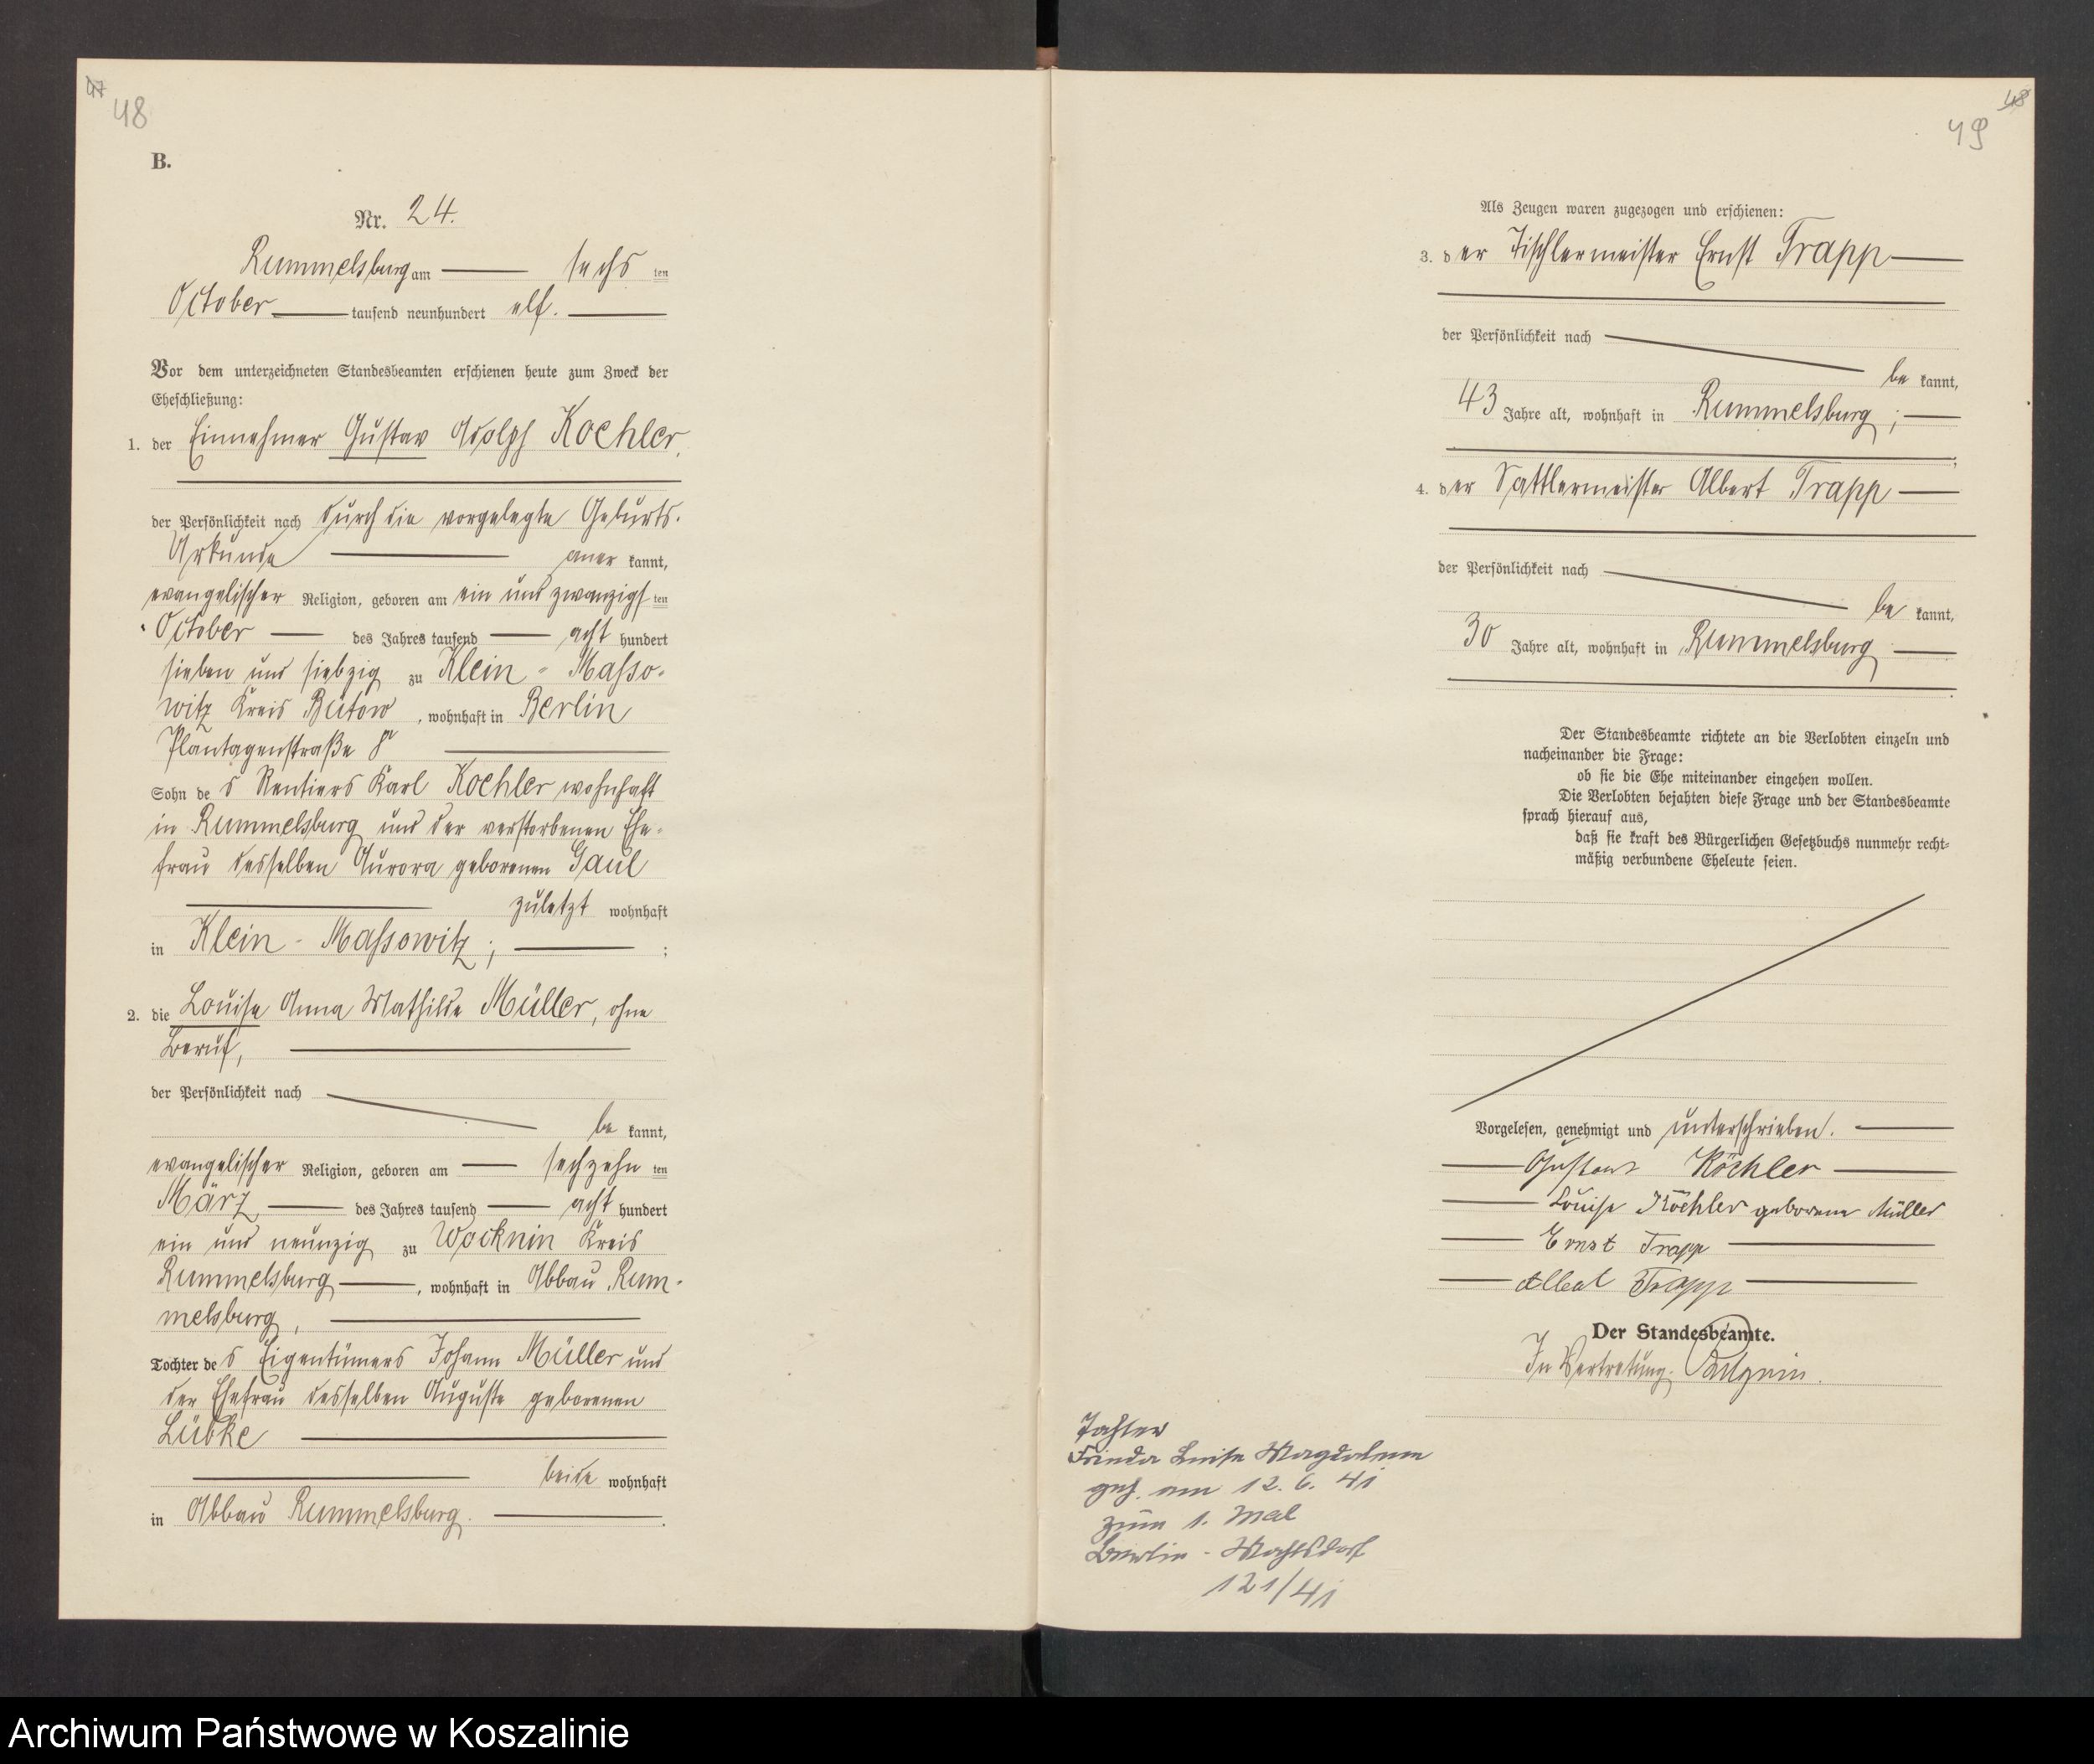 47
48
B.
Nr. 24.
Rummelsburg am sechs ten
October tausend neunhundert elf.
Vor dem unterzeichneten Standesbeamten erschienen heute zum Zweck der
Eheschließung:
1. der Einnehmer Gustav Adolph Koehler,
der Persönlichkeit nach durch die vorgelegte Geburts-
Urkunde aner kannt,
evangelischer Religion, geboren am ein und zwanzigs ten
October des Jahres tausend acht hundert
sieben und siebzig zu Klein-Masso-
witz Kreis Bütow, wohnhaft in Berlin
Plantagenstraße 8
Sohn des Rentiers Karl Koehler wohnhaft
in Rummelsburg und der verstorbenen Ehe-
frau desselben Aurora geborenen Gaul
zuletzt wohnhaft
in Klein-Massowitz; ;
2. die Louise Anna Mathilde Müller, ohne
Beruf,
der Persönlichkeit nach
be kannt,
evangelischer Religion, geboren am sechzehn ten
März des Jahres tausend acht hundert
ein und neunzig zu Wocknin Kreis
Rummelsburg, wohnhaft in Abbau Rum-
melsburg,
Tochter des Eigentümers Johann Müller und
der Ehefrau desselben Auguste geborenen
Lübke
beide wohnhaft
in Abbau Rummelsburg.
48
49
Als Zeugen waren zugezogen und erschienen:
3. der Tischlermeister Ernst Trapp
der Persönlichkeit nach
be kannt,
43 Jahre alt, wohnhaft in Rummelsburg;
4. der Sattlermeister Albert Trapp
der Persönlichkeit nach
be kannt,
30 Jahre alt, wohnhaft in Rummelsburg
Der Standesbeamte richtete an die Verlobten einzeln und
nacheinander die Frage:
ob sie die Ehe miteinander eingehen wollen.
Die Verlobten bejahten diese Frage und der Standesbeamte
sprach hierauf aus,
daß sie kraft des Bürgerlichen Gesetzbuchs nunmehr recht-
mäßig verbundene Eheleute seien.
Vorgelesen, genehmigt und unterschrieben.
Gustav Köehler
Louise Köehler geborene Müller
Ernst Trapp
Albert Trapp
Der Standesbeamte.
In Vertretung.
Tochter
Frieda Luise Magdalene
geh. am 12. 6. 41
zum 1. Mal
Berlin-Mahlsdorf
121/41
Archiwum Państwowe w Koszalinie